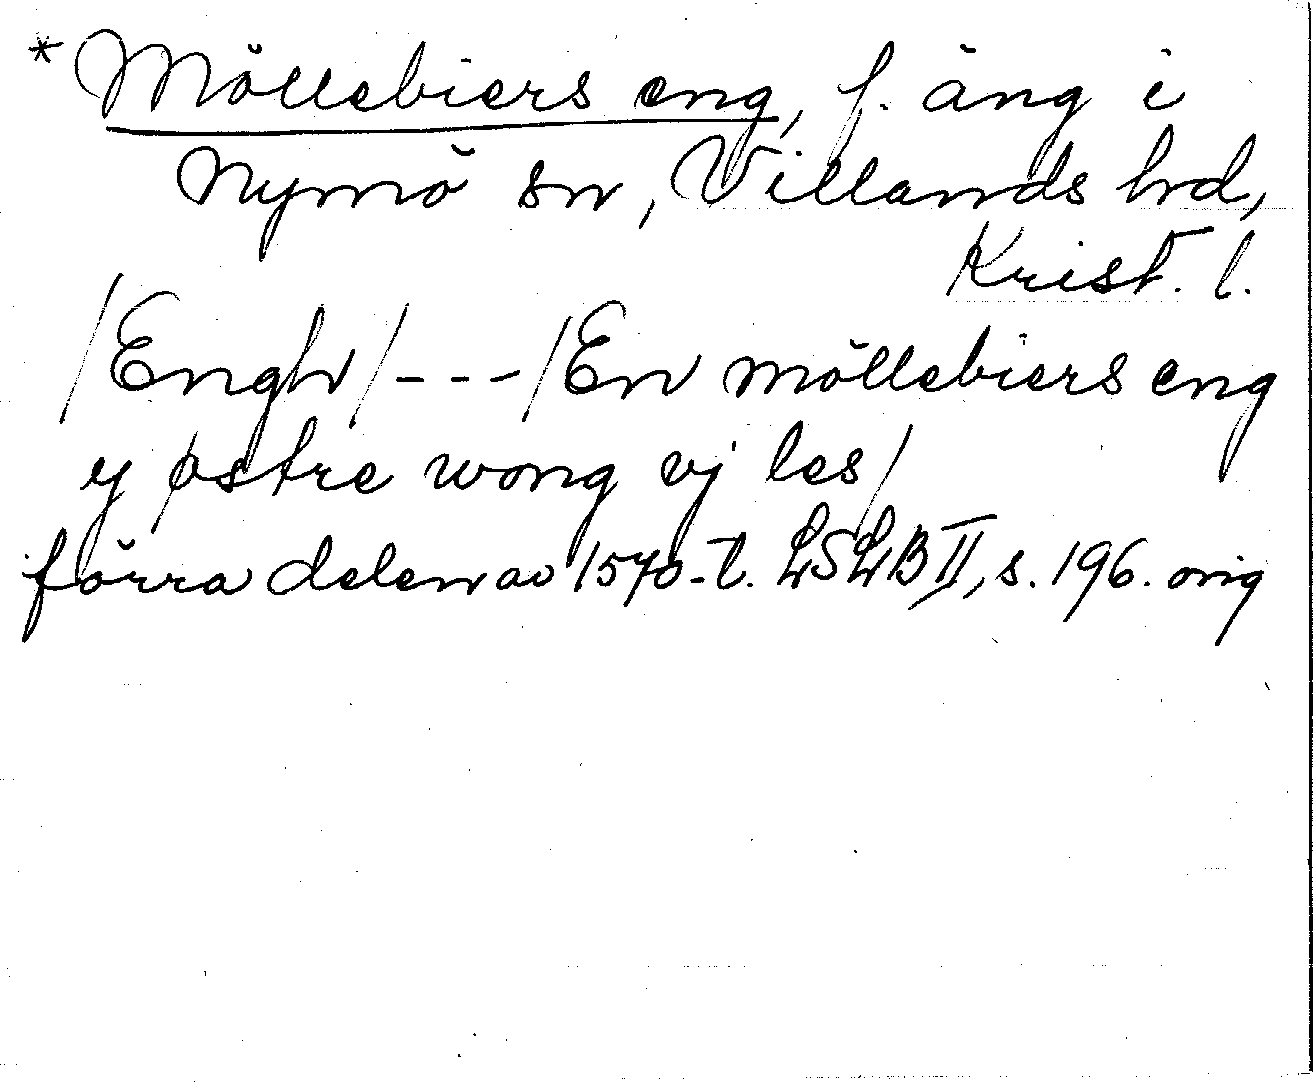 *Möllebiers eng, f. äng i
Nymö sn, Villands hd,
Krist. l.
/Engh/ - - - /En möllebiers eng
y østre wong vj les/
förra delen av 1570-t. LSLB II, s. 196. orig